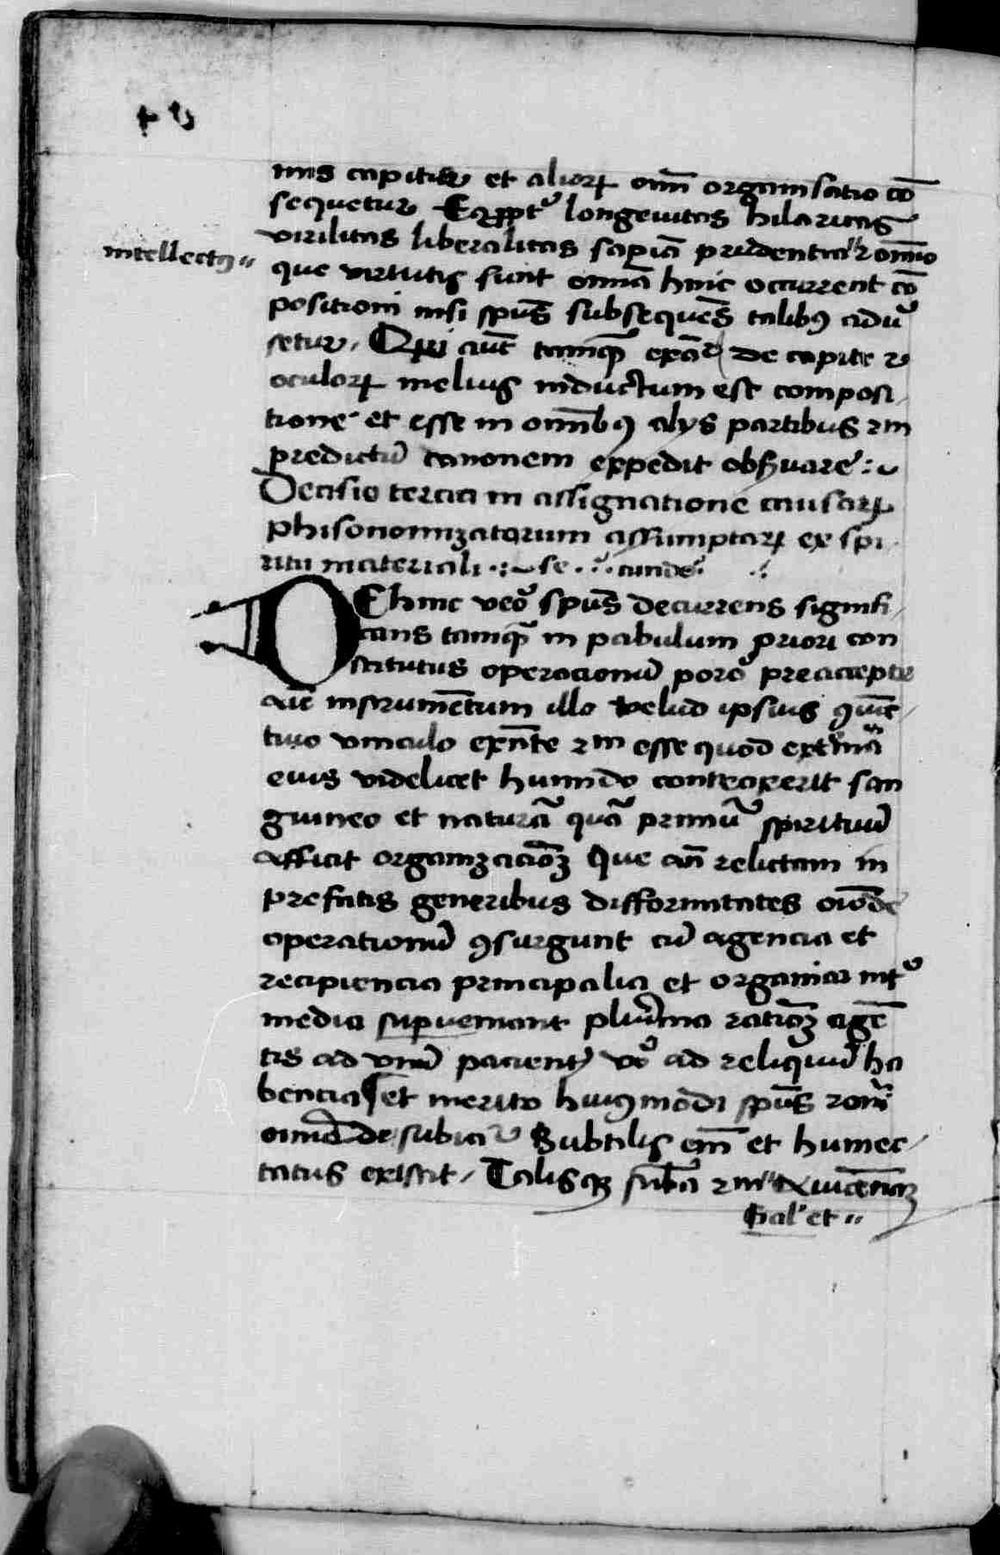 nus capitis et alioꝝ om̄ organisatio cō
sequetur longeuitas hilaritas
virilitas liberalitas sapiā prudentia
intellectꝯ
que virtutis sunt omā huic occurrent cō
positioni nisi spūs subsequēs talibꝯ adū
setur. Qui aūt tamqꝫ de capite ⁊
oculoꝝ melius inductum est composi
tione et esse in omībꝯ alys partibus ⁊ in
predictū canonem expedit obseruare
Decisio tercia in assignatione causaꝝ
phisonomizatorum assumptaꝝ ex spi
ritu materiali
DEhinc veo spūs decurrens signifi
cans tamqꝫ in pabulum priori con
stitutus operacionū porō
instrumētum illo velud ipsius
tiuo vinculo exn̄te ⁊ in esse quod
eius videlicet humido contraxerit san
guineo et naturā quā primū spirituū
efficit organizaciōꝫ Que relictam in
prefatis generibus difformitates
operationū ꝯsurgunt cū agencia et
recipiencia principalia et organica int
media superueniant plurima ratiōꝫ agē
tis ad vnū pacientꝭ vo ad reliquū ha
bencia et merito huiꝯmodi spūs
subtilis em̄ et humec
tatus existit. Talisqꝫ
Gal' et